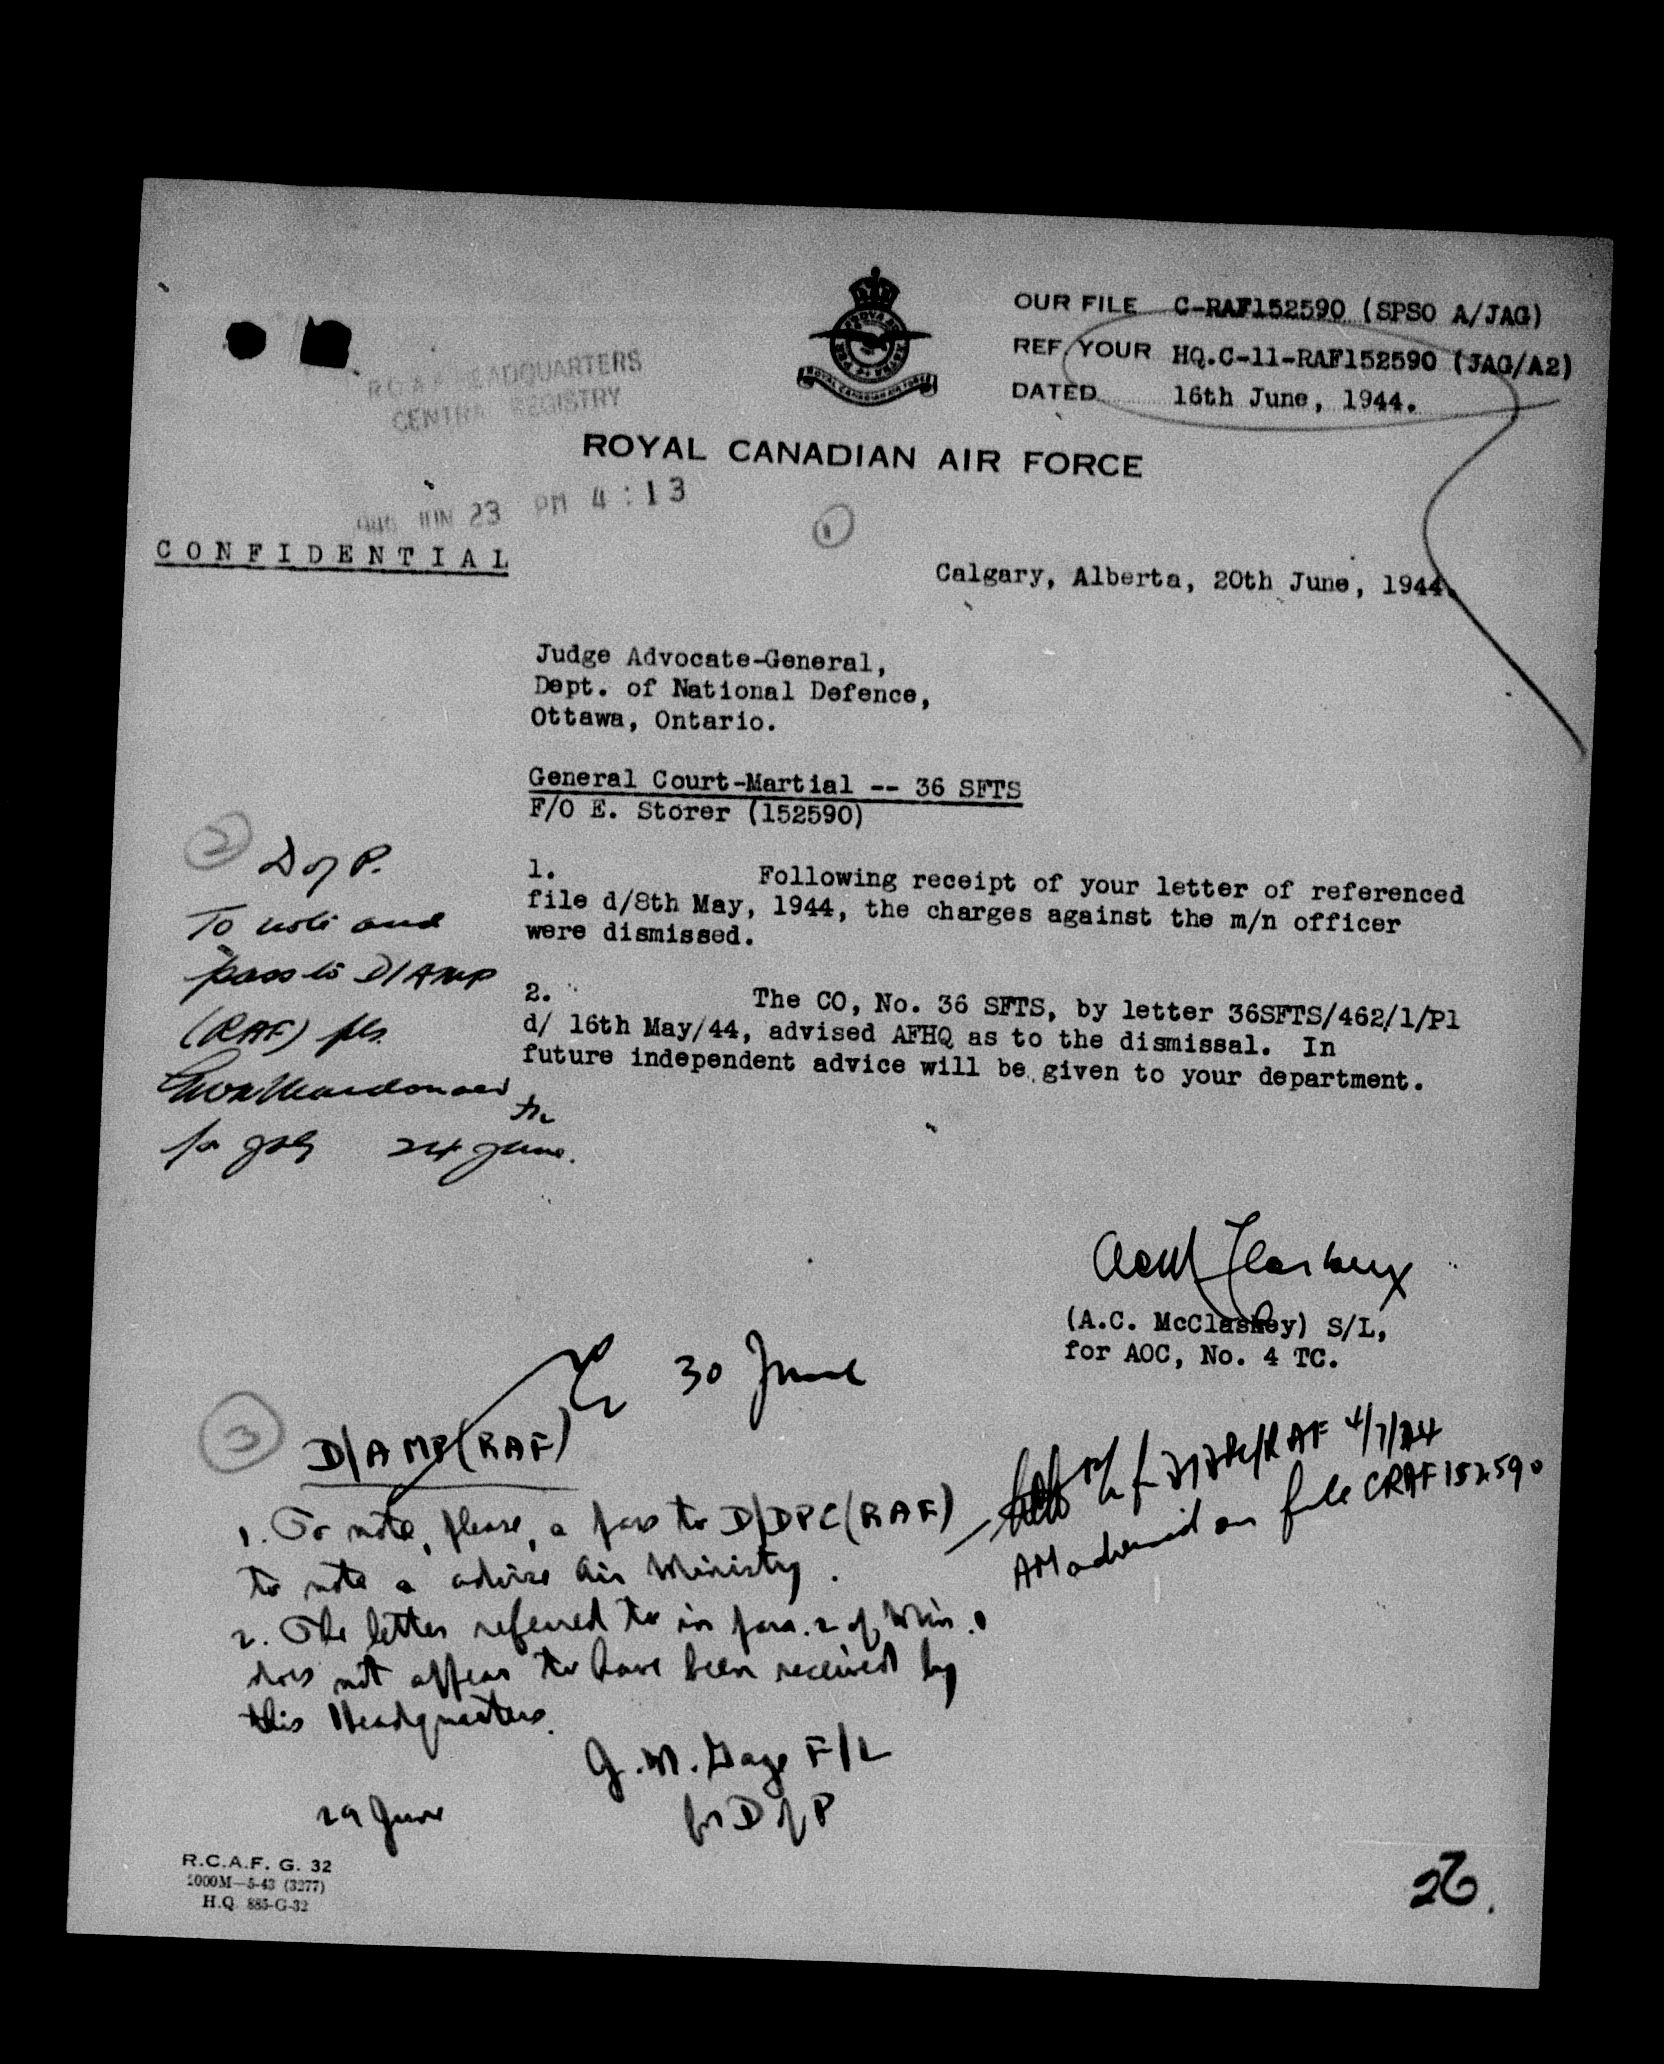 OUR FILE C-RAF152590 (SPSO A/JAG)
REF. YOUR HQ.C-11-RAF152590 (JAG/A2)
DATED 16th June, 1944.
R.C.A.F. HEADQUARTERS
CENTRAL REGISTRY
ROYAL CANADIAN AIR FORCE
JUN 23 PM 4:13
1
CONFIDENTIAL
Calgary, Alberta, 20th June, 1944.
Judge Advocate-General,
Dept. of National Defence,
Ottawa, Ontario.
General Court-Martial -- 36 SFTS
F/O E. Storer (152590)
1. Following receipt of your letter of referenced
file d/8th May, 1944, the charges against the m/n officer
were dismissed.
2. The CO, No. 36 SFTS, by letter 36SFTS/462/1/P1
d/ 16th May/44, advised AFHQ as to the dismissal. In
future independent advice will be given to your department.
2
D of P.
To note and
pass to D/AMP
(RAF) pls.
for JAG 24 June.
(A.C. McClaskey) S/L,
for AOC, No. 4 TC.
30 June
3
D/AMP(RAF)
1. To note, please, & pass to D/DPC(RAF)
to note & advise Air Ministry.
2. The letter referred to in para. 2 of Min. 1
does not appear to have been received by
this Headquarters.
G.M. Gage F/L
for D of P
29 June
4/7/44
AM advised on file CRAF152590
R.C.A.F. G. 32
1000M—5-43 (3277)
H.Q. 885-G-32
26.